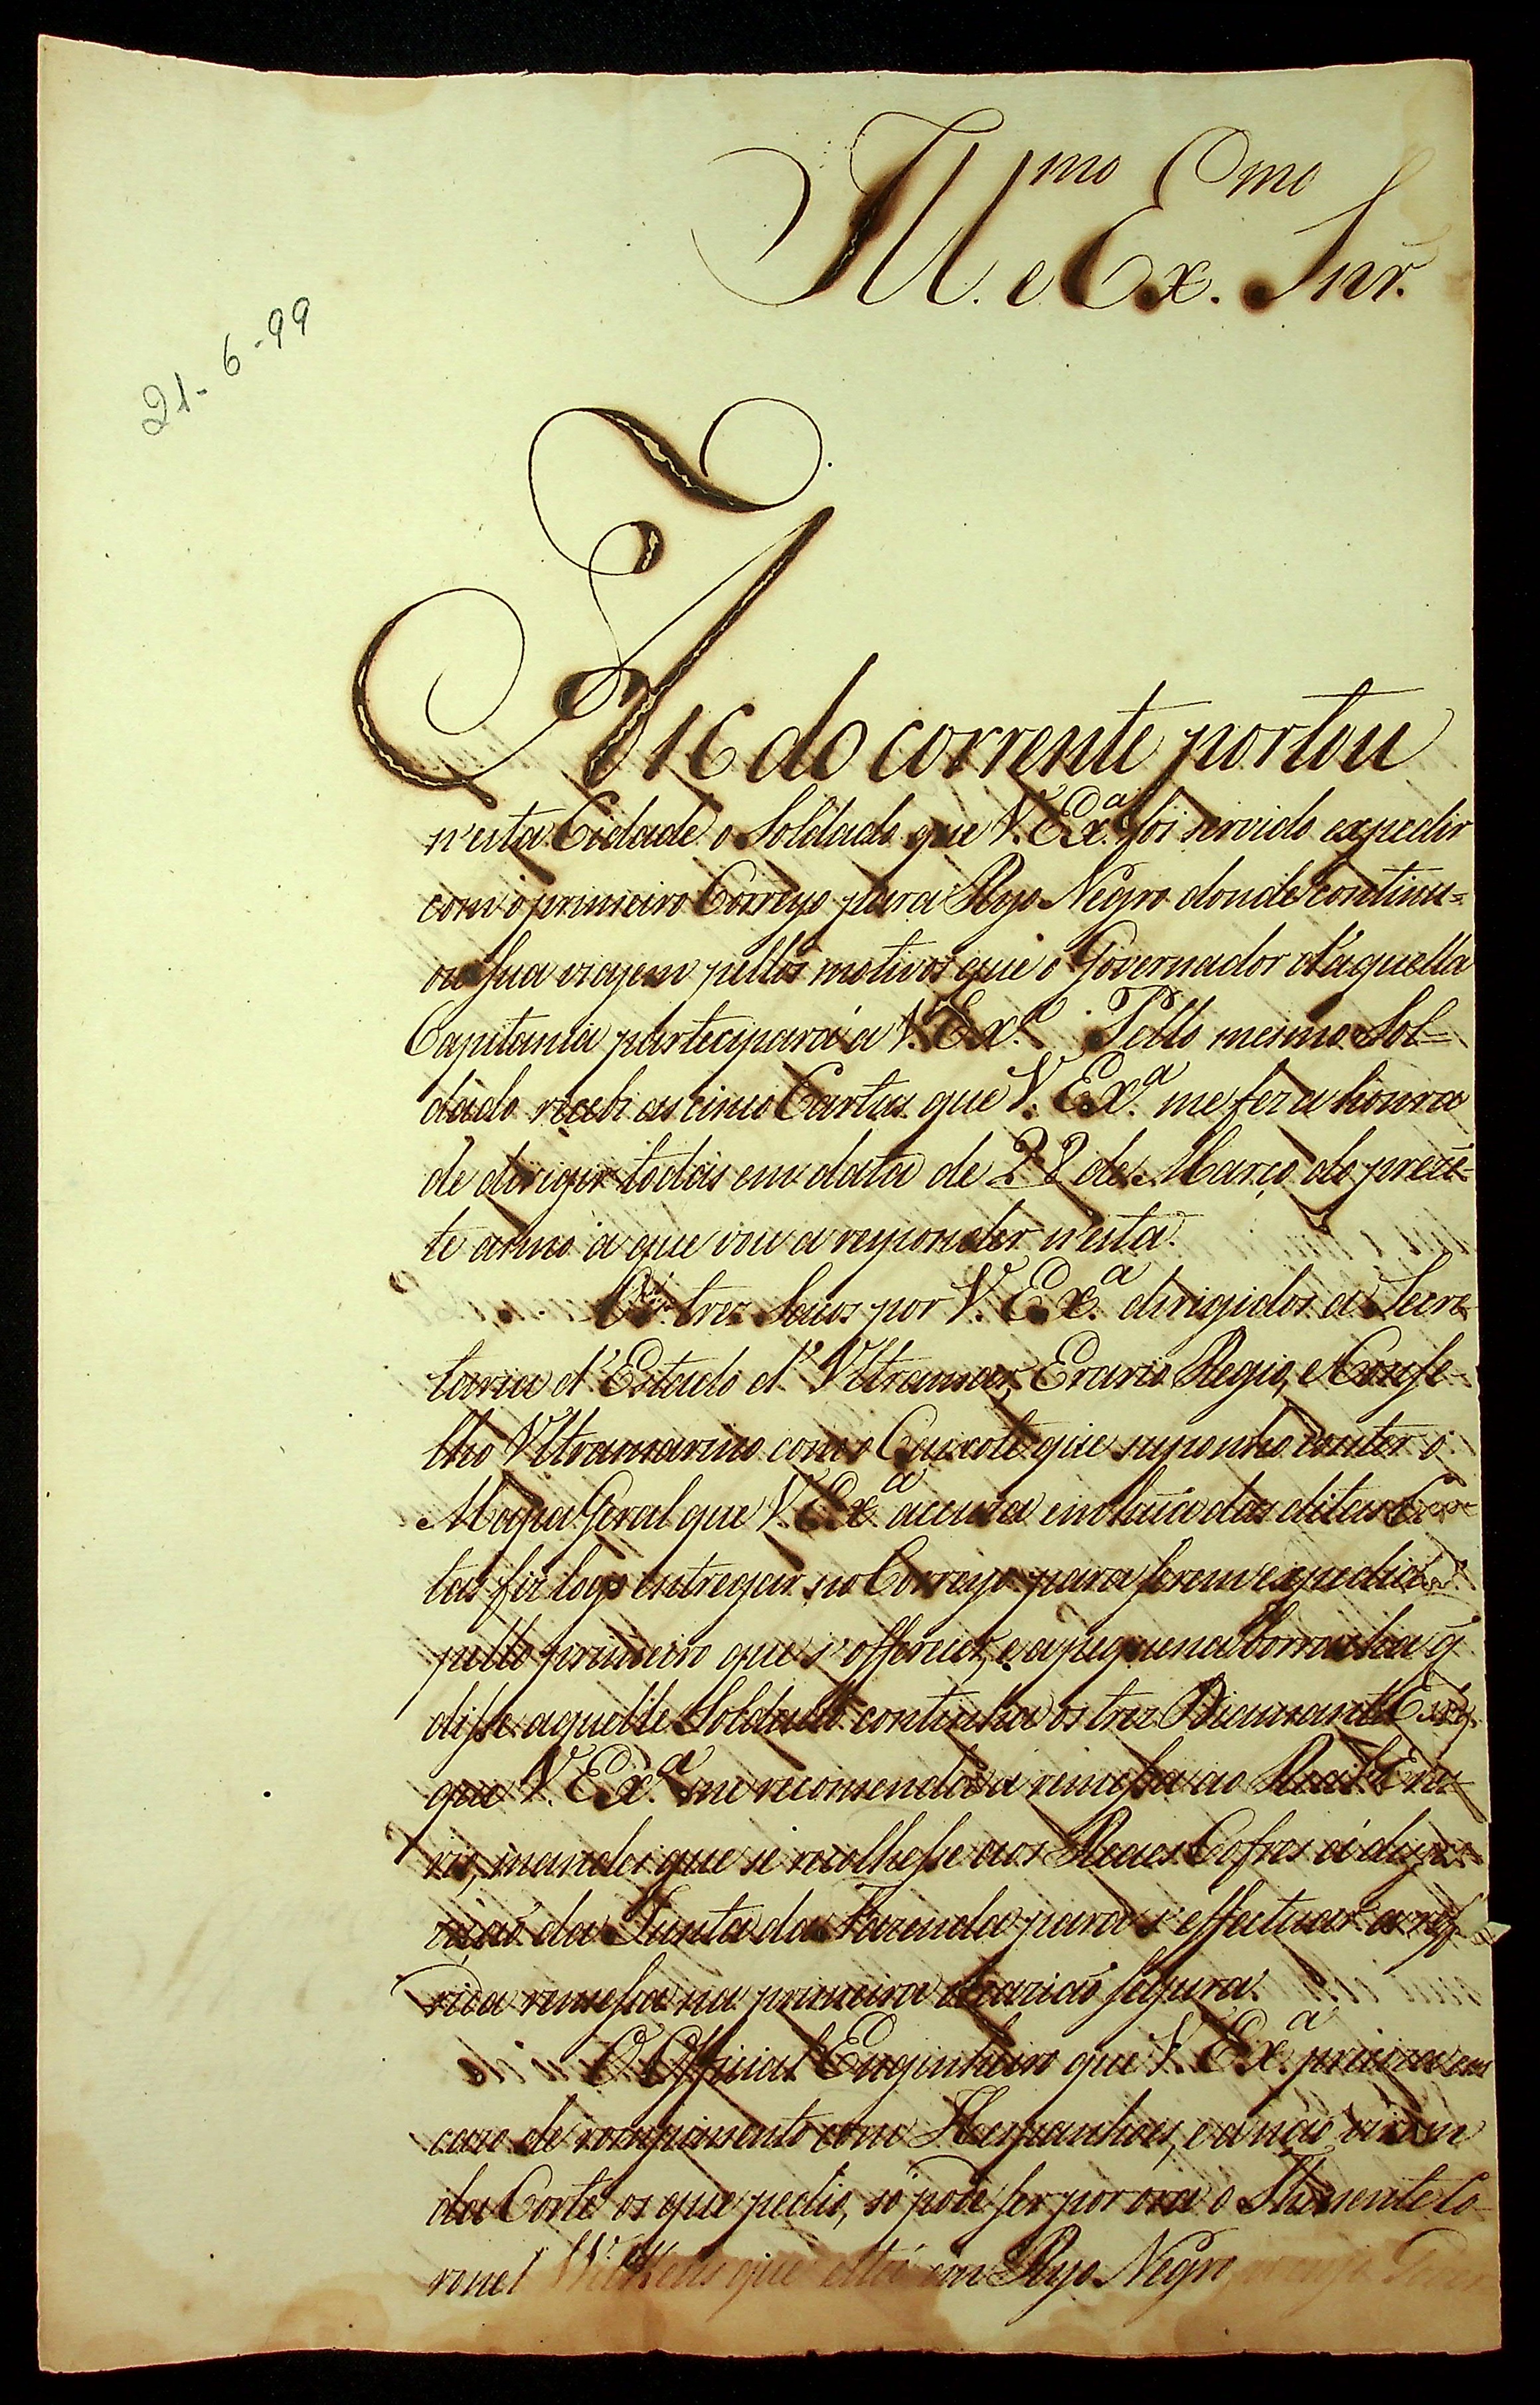 Ill.mo e Ex.mo Snr.
21-6-99
A 16 do corrente portou
n'esta Cidade o Soldado que V. Ex.a foi servido expedir
com o primeiro Correyo para Ryo Negro donde continu=
ou sua viagem pellos motivos que o Governador d'aquella
Capitania participará a V. Ex.a Pello mesmo Sol=
dado recebi as cinco Cartas que V. Ex.a me fez a honra
de dirigir todas em data de 22 de Março do prezẽ-
te anno á que vou a responder n'esta.
Os trez Sacos por V. Ex.a dirigidos a Secre-
taria d'Estado d'Ultramar, Erario Regio, e Conse-
lho Ultramarino com o Caixote que suponho conter o
Mapa Geral que V. Ex.a accuza em húa das ditas Car-
tas fiz logo entregar no Correyo para serem expedidos
pello primeiro que s'offerecer, e a pequena borracha q̃
disse aquelle Soldado continha os trez Diamantes
que V. Ex.a me recomenda a remessa ao Real Era-
rio, mandei que se recolhesse aos Reaes Cofres á dispo-
zição da Junta da Fazenda para s'effectuar a ref-
rida remessa na primeira ocazião segura.
O Official Enginheiro que V. Ex.a preciza em
cazo de rompimento com Hespanhoes, e a não virem
da Corte os que pedio, só pode ser por ora o Thenente Co-
ronel Wilkens que está em Ryo Negro